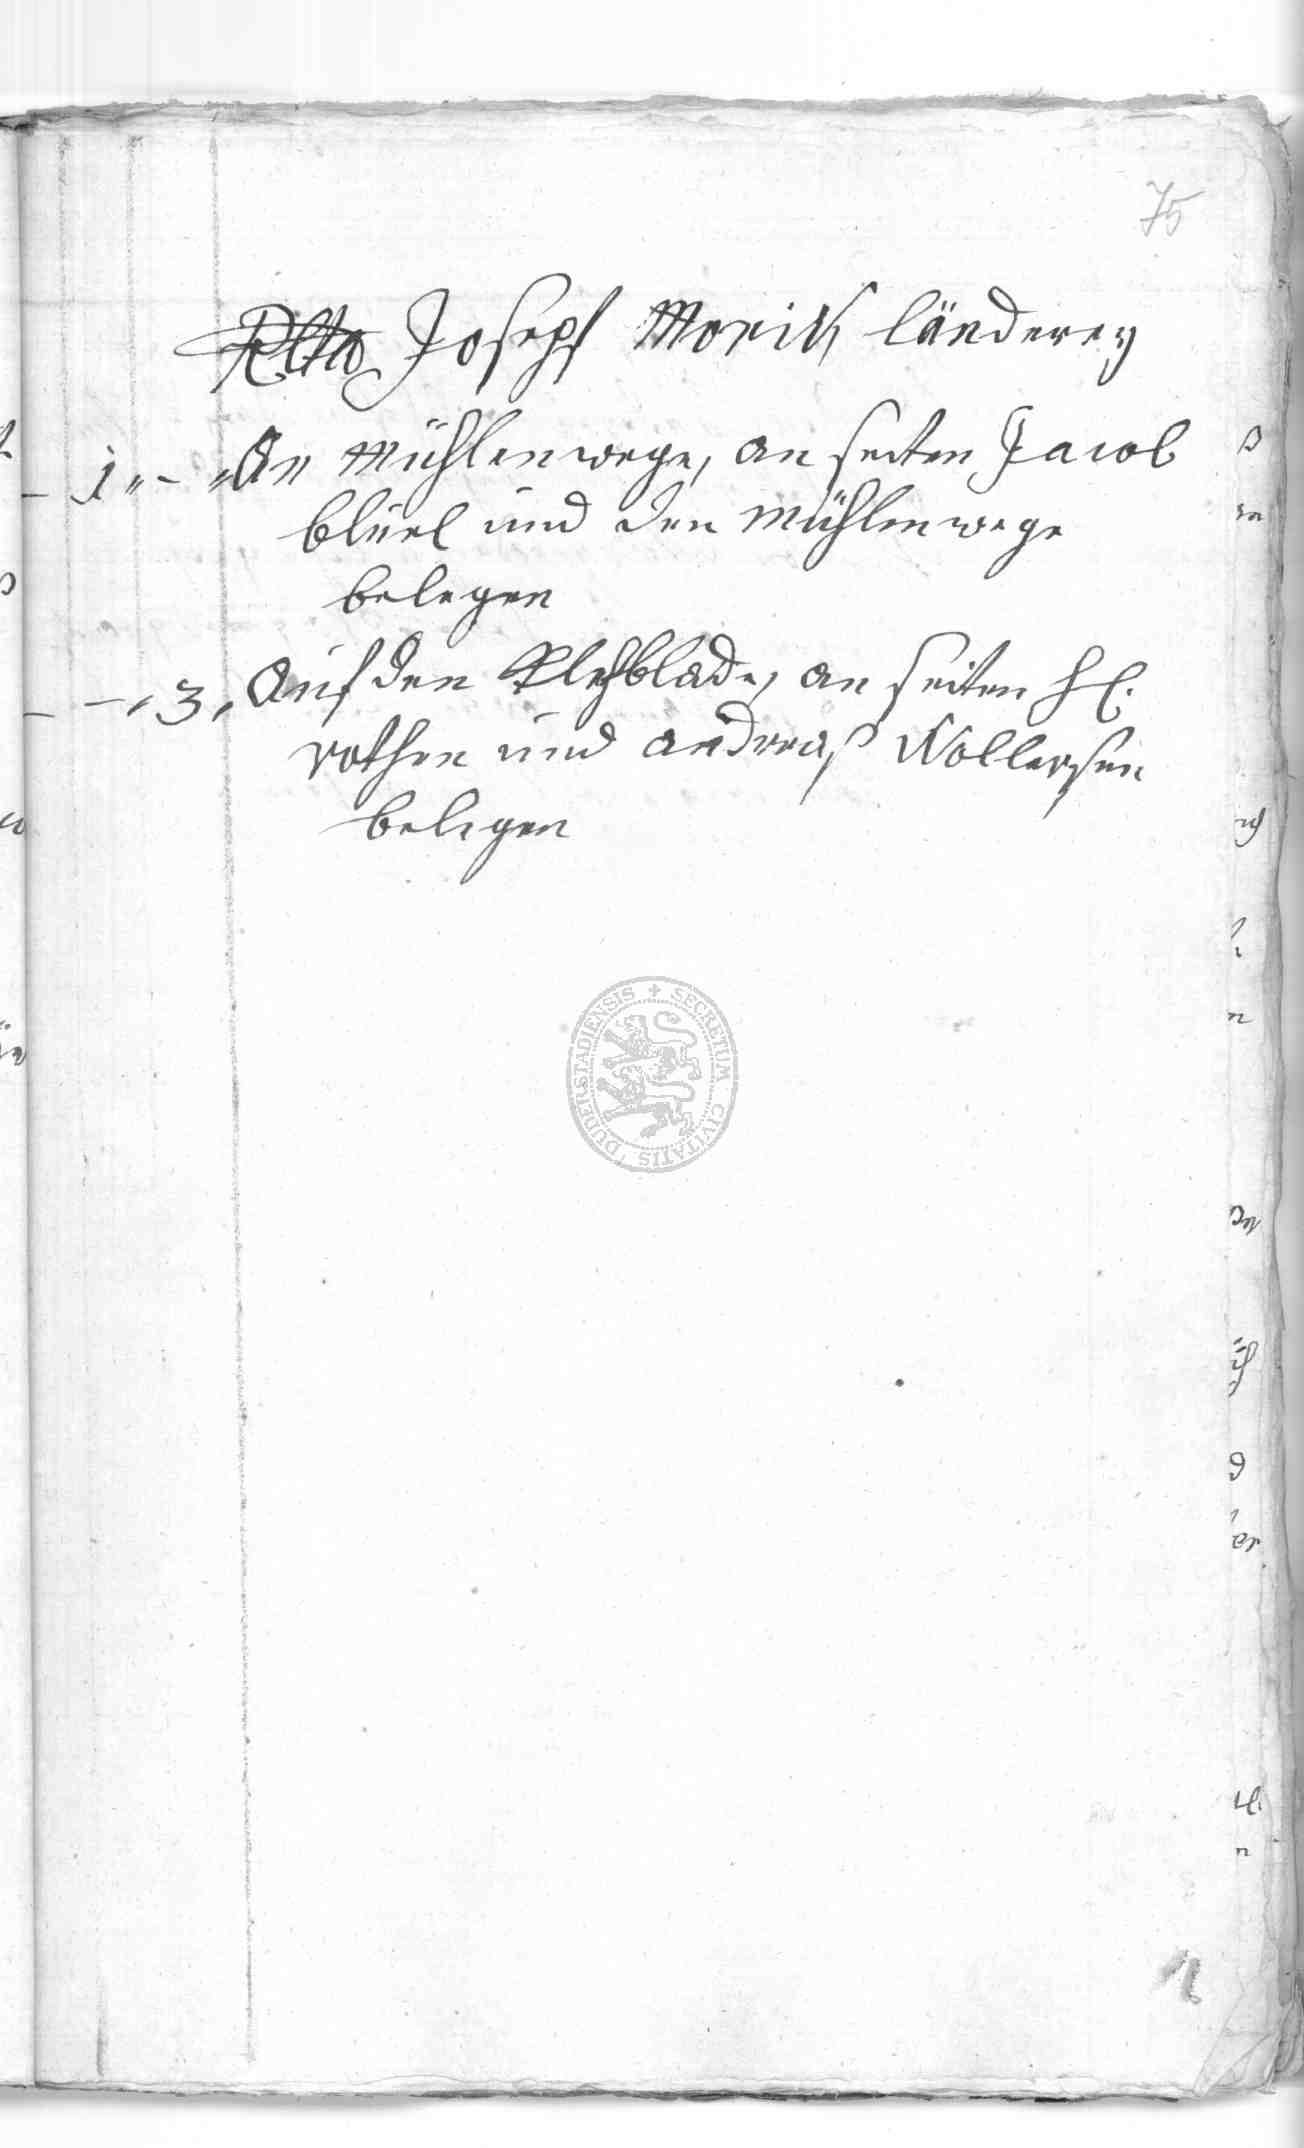 75
Joseph Moritz länderey
1 „ – „ An Mühlen wege, an seiten Jacob
blüel und den Mühlen wege
belegen
– „ 3 „ Auf den Klehblade, an seiten H.
rothen und andreaß Nollersen
belegen
SECRETUM CIVITATIS DUDERSTADIENSIS